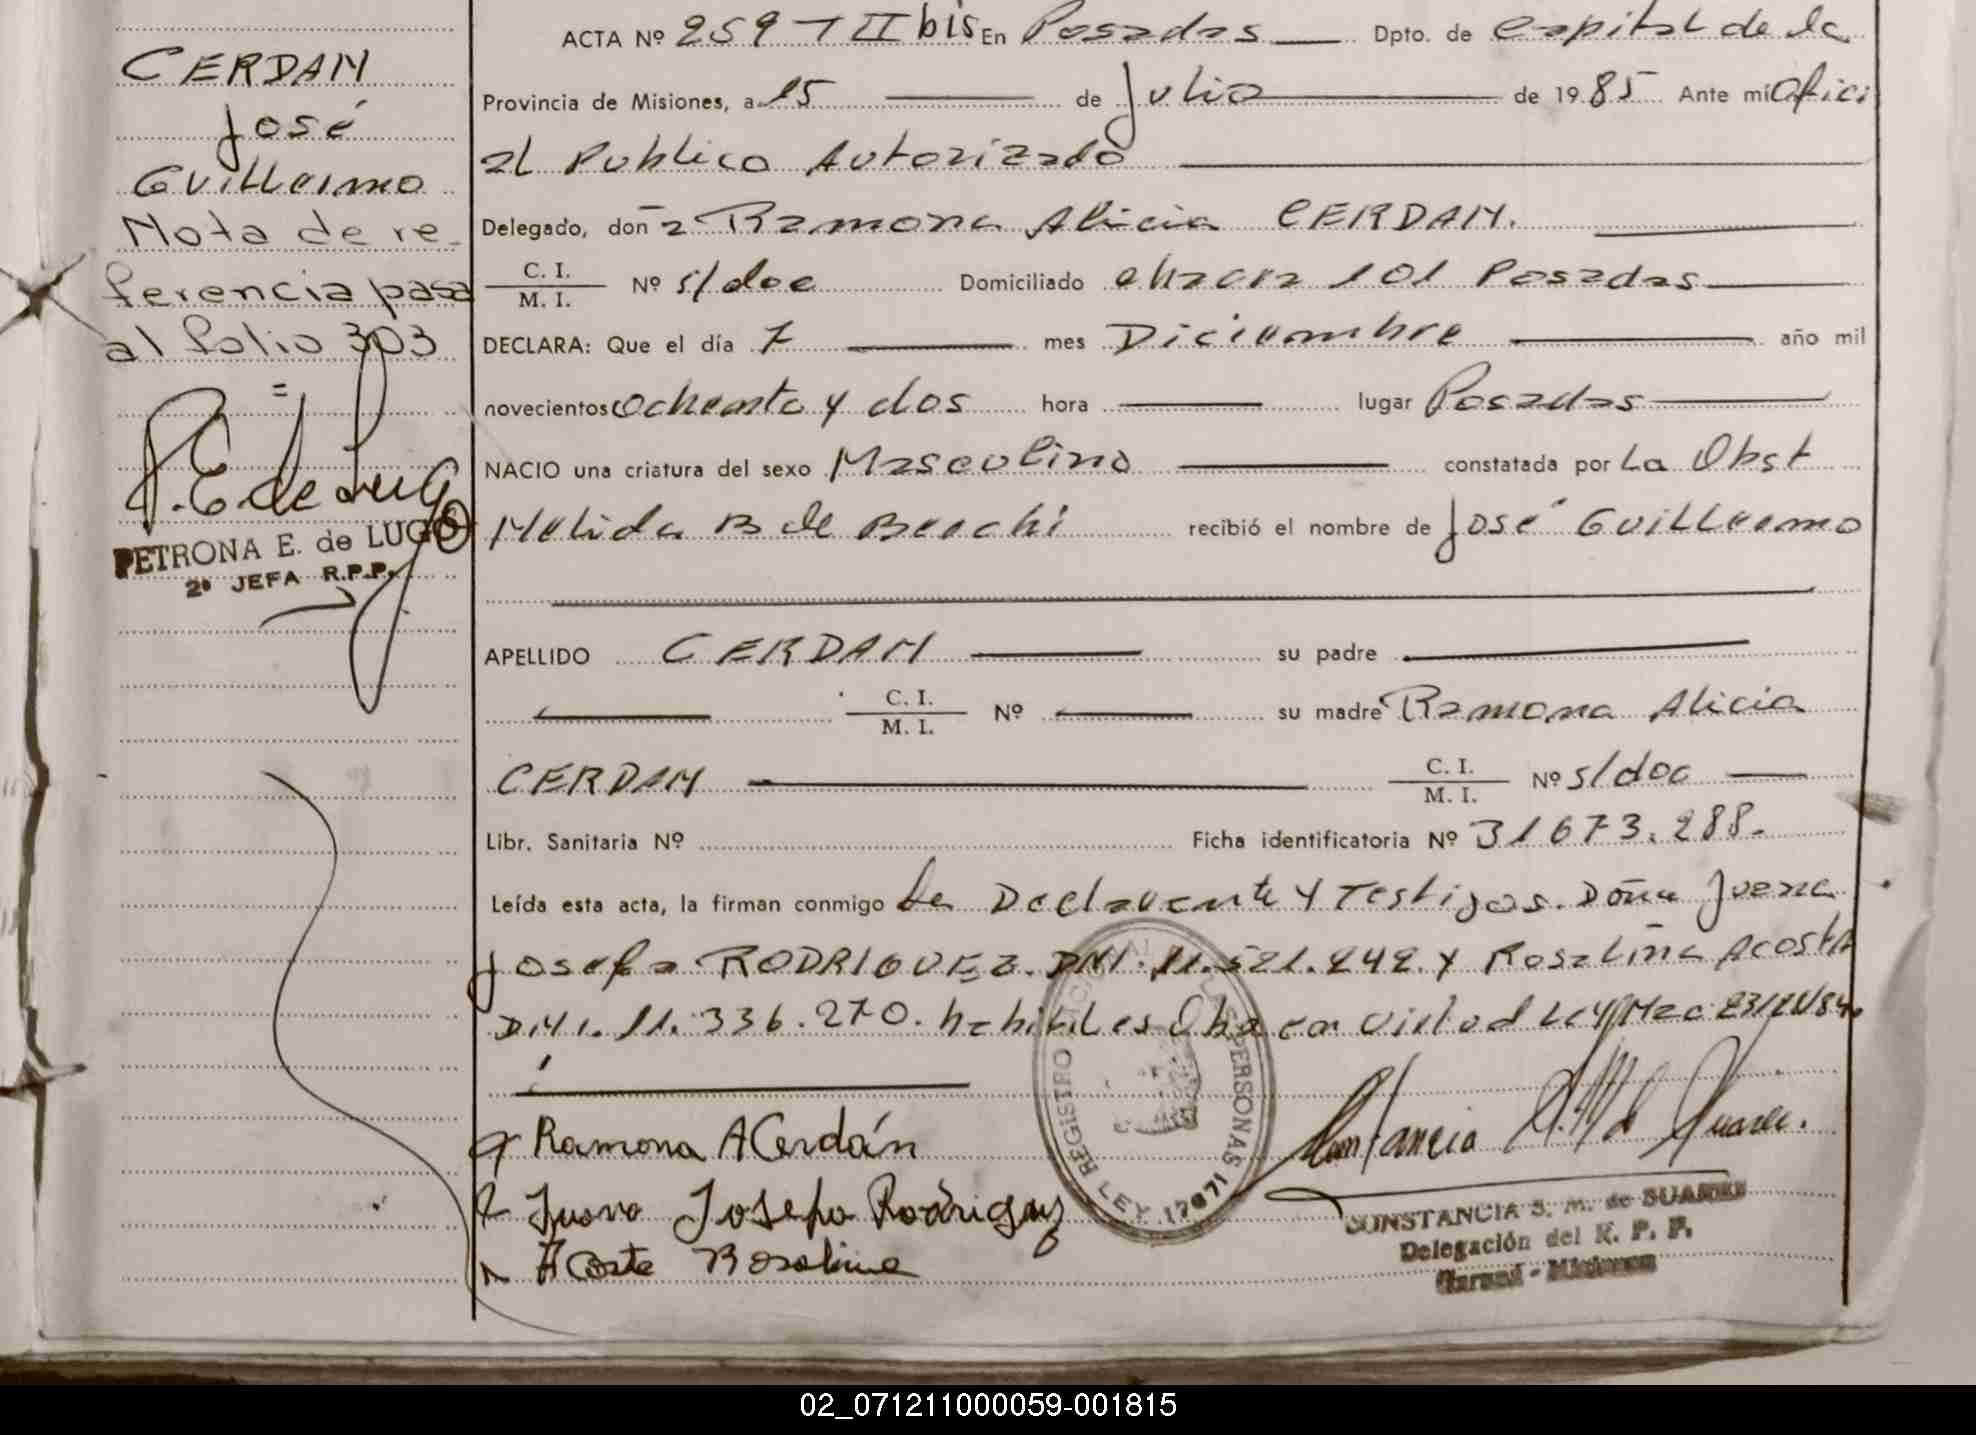 CERDAN
José
Guillermo
Nota de re-
ferencia pasa
al folio 303
P. E. de Lugo
PETRONA E. de LUGO
2º JEFA R.P.P.
ACTA Nº 259 T II bis En Posadas Dpto. de Capital de la
Provincia de Misiones, a 15 de Julio de 1985 Ante mi Ofici
al Publico Autorizado
Delegado, doña Ramona Alicia CERDAN.
C. I.
M. I. Nº s/doc Domiciliado chacra 101 Posadas
DECLARA: Que el día 7 mes Diciembre año mil
novecientos ochenta y dos hora lugar Posadas
NACIO una criatura del sexo Masculino constatada por La Obst
Nelida B de recibió el nombre de José Guillermo
APELLIDO CERDAN su padre
C. I.
M. I. Nº su madre Ramona Alicia
CERDAN C. I.
M. I. Nº s/doc
Libr. Sanitaria Nº Ficha identificatoria Nº 31673.288.
Leída esta acta, la firman conmigo La Declarante y Testigos. Doña Juana
Josefa RODRIGUEZ. DNI. 11.521.242. y Rosalina Acosta
DNI. 11.336.270. habiles en virtud Ley
Ramona A Cerdán
Juana Josefa Rodriguez
Acosta Rosalina
REGISTRO PERSONAS
LEY 17671
CONSTANCIA S. M. de SUAREZ
Delegación del R. P. P.
02_071211000059-001815